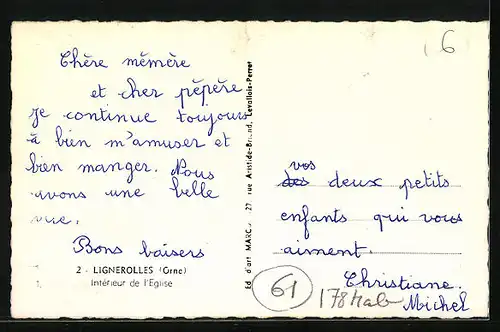 Chère mémère
et cher pépère
je continue toujours
à bien m'amuser et
bien manger. Nous
avons une belle
vue.
Bons baisers
2 - LIGNEROLLES (Orne)
Intérieur de l'Eglise
Ed. d'art MARC, 27, rue Aristide-Briand, Levallois-Perret
6
vos
des deux petits
enfants qui vous
aiment.
Christiane.
Michel
61
178 hab